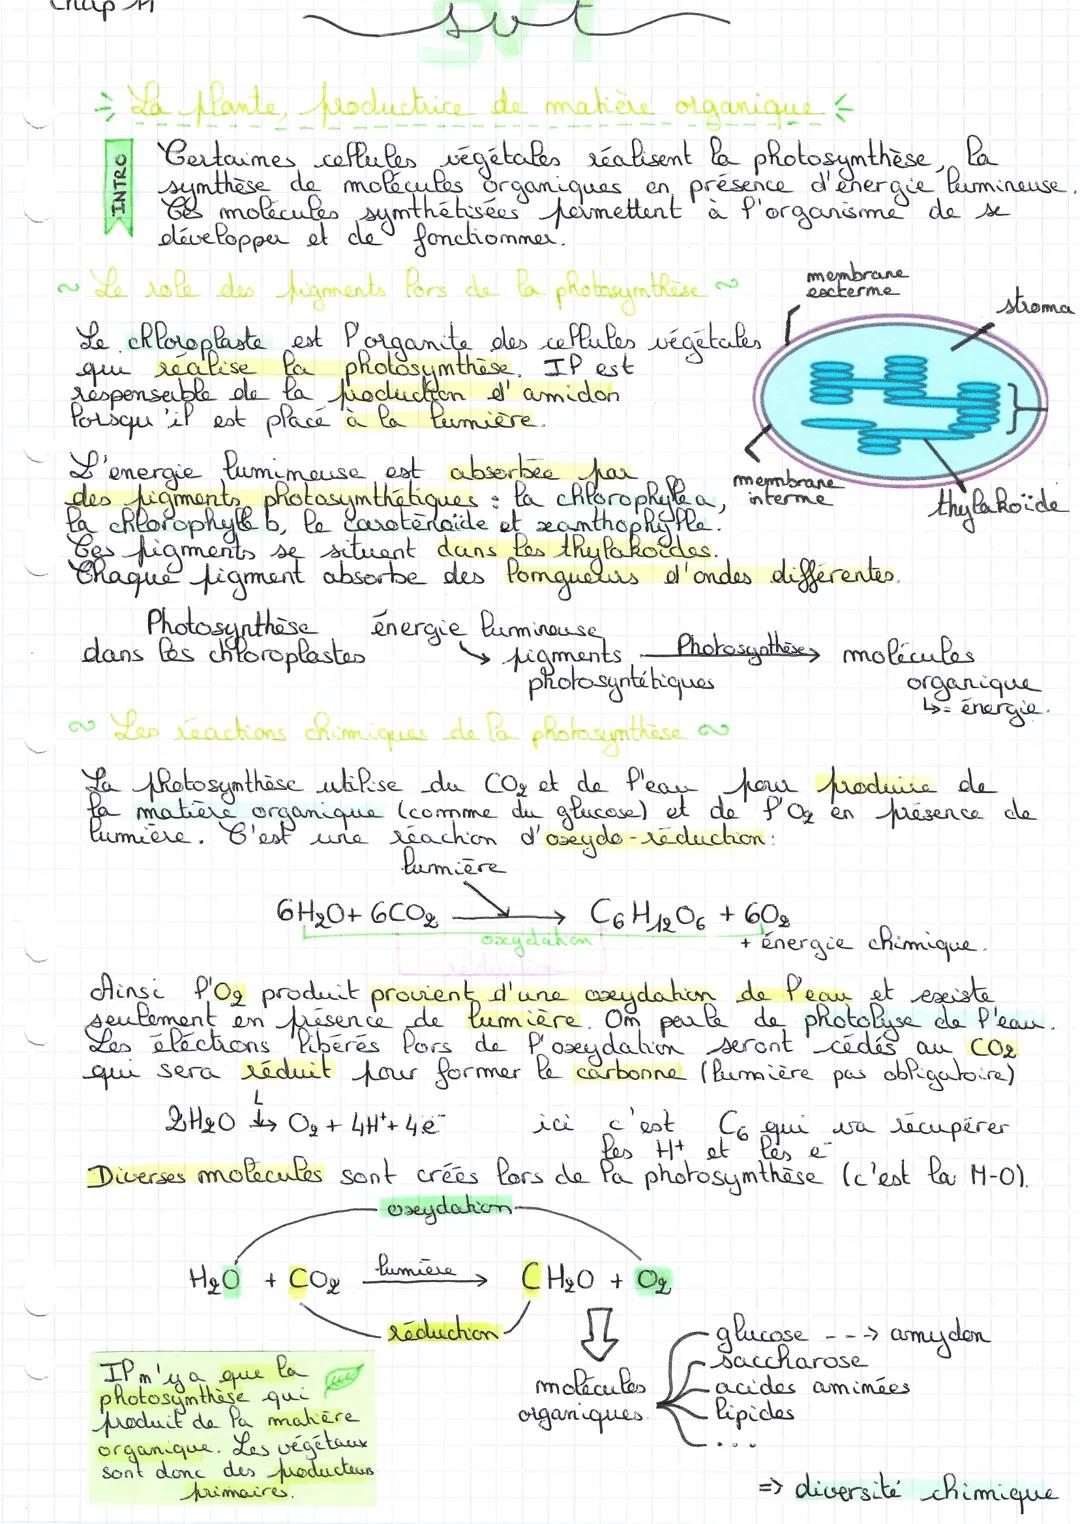 Chap 11
svt
La plante, productrice de matière organique
INTRO
Certaines cellules végétales réalisent la photosynthèse, la
synthèse de molécules organiques en présence d'énergie lumineuse.
Ces molécules synthétisées permettent à l'organisme de se
développer et de fonctionner.
~ Le role des pigments lors de la photosynthèse ~
membrane
externe
stroma
Le chloroplaste est l'organite des cellules végétales
qui réalise la photosynthèse. Il est
responsable de la production d'amidon
lorsqu'il est placé à la lumière.
membrane
interne
thylakoïde
L'énergie lumineuse est absorbée par
des pigments photosynthétiques : la chlorophylle a,
la chlorophylle b, le caroténoïde et xanthophylle.
Ces pigments se situent dans les thylakoïdes.
Chaque pigment absorbe des longueurs d'ondes différentes.
Photosynthèse
dans les chloroplastes
énergie lumineuse
↳ pigments
photosyntétiques
Photosynthèse
molécules
organique
↳= énergie.
~ Les réactions chimiques de la photosynthèse ~
La photosynthèse utilise du CO2 et de l'eau pour produire de
la matière organique (comme du glucose) et de l'O2 en présence de
lumière. C'est une réaction d'oxydo-réduction:
lumière
6H2O + 6CO2 → C6H12O6 + 6O2
oxydation
+ énergie chimique.
réduction
Ainsi l'O2 produit provient d'une oxydation de l'eau et existe
seulement en présence de lumière. On parle de photolyse de l'eau.
Les éléctions libérés lors de l'oxydation seront cédés au CO2
qui sera réduit pour former le carbonne (lumière pas obligatoire)
L
2H2O → O2 + 4H+ + 4e-
ici c'est C6 qui va récupérer
les H+ et les e-
Diverses molécules sont créés lors de la photosynthèse (c'est la M-O).
oxydation
H2O + CO2 lumière → CH2O + O2
réduction
molécules
organiques
glucose - - → amydon
saccharose
acides aminées
lipides
...
Il n'y a que la
photosynthèse qui
produit de la matière
organique. Les végétaux
sont donc des producteurs
primaires.
=> diversité chimique